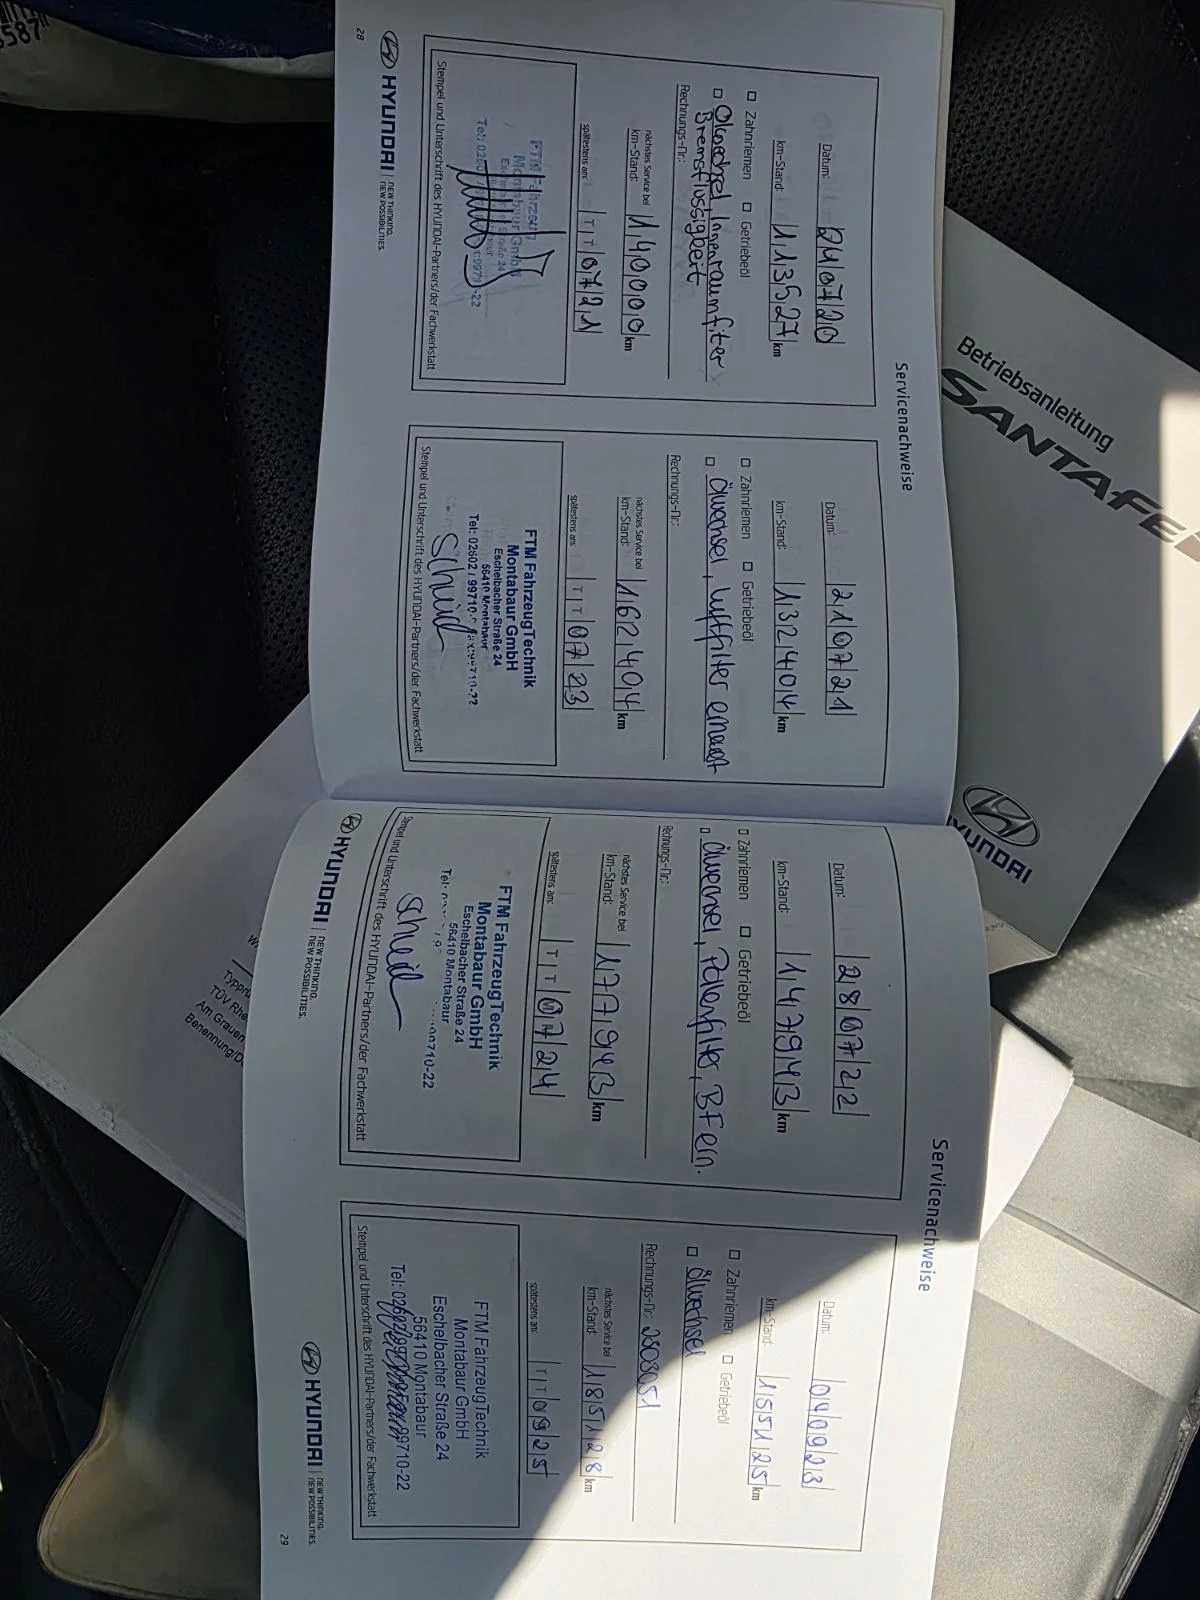 Servicenachweise
Datum: 240720
km-Stand: 113527 km
Zahnriemen Getriebeöl
Ölwechsel Innenraumfilter
Bremsflüssigkeit
Rechnungs-Nr.:
nächstes Service bei
km-Stand: 140000 km
spätestens am: TT0721
FTM Fahrzeug
Montabaur GmbH
Stempel und Unterschrift des HYUNDAI-Partners/der Fachwerkstatt
Datum: 210721
km-Stand: 132404 km
Zahnriemen Getriebeöl
Ölwechsel, Luftfilter erneuert
Rechnungs-Nr.:
nächstes Service bei
km-Stand: 162404 km
spätestens am: TT0723
FTM FahrzeugTechnik
Montabaur GmbH
Eschelbacher Straße 24
56410 Montabaur
Tel: 02602 / 99710
Stempel und Unterschrift des HYUNDAI-Partners/der Fachwerkstatt
28
HYUNDAI NEW THINKING.
NEW POSSIBILITIES.
Servicenachweise
Datum: 280722
km-Stand: 147943 km
Zahnriemen Getriebeöl
Ölwechsel, Pollenfilter, BF ern.
Rechnungs-Nr.:
nächstes Service bei
km-Stand: 177943 km
spätestens am: TT0724
FTM FahrzeugTechnik
Montabaur GmbH
Eschelbacher Straße 24
56410 Montabaur
Stempel und Unterschrift des HYUNDAI-Partners/der Fachwerkstatt
HYUNDAI NEW THINKING.
NEW POSSIBILITIES.
Datum: 040923
km-Stand: 155125 km
Zahnriemen Getriebeöl
Ölwechsel
Rechnungs-Nr.: 2303051
nächstes Service bei
km-Stand: 185128 km
spätestens am: TT0925
FTM FahrzeugTechnik
Montabaur GmbH
Eschelbacher Straße 24
56410 Montabaur
Stempel und Unterschrift des HYUNDAI-Partners/der Fachwerkstatt
HYUNDAI NEW THINKING.
NEW POSSIBILITIES.
29
Betriebsanleitung
SANTA FE
HYUNDAI
TÜV
Am Grauen